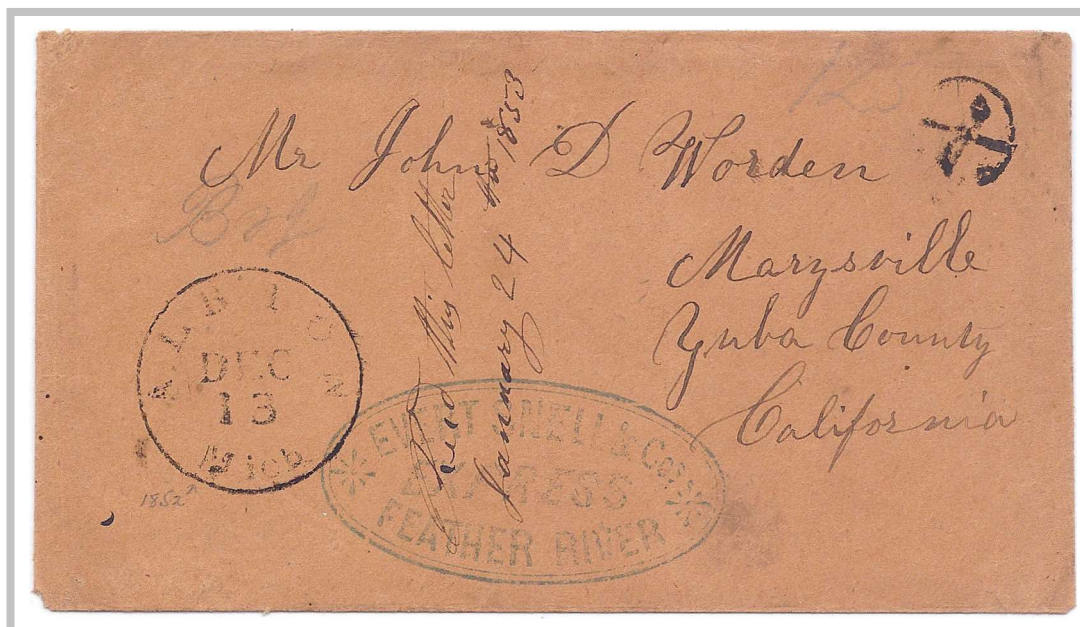 Mr John D Worden
Marysville
Yuba County
California
ALBION
DEC
13
Mich
1852
Recd this letter
January 24 1853
EVERT SNELL & Co's
EXPRESS
FEATHER RIVER